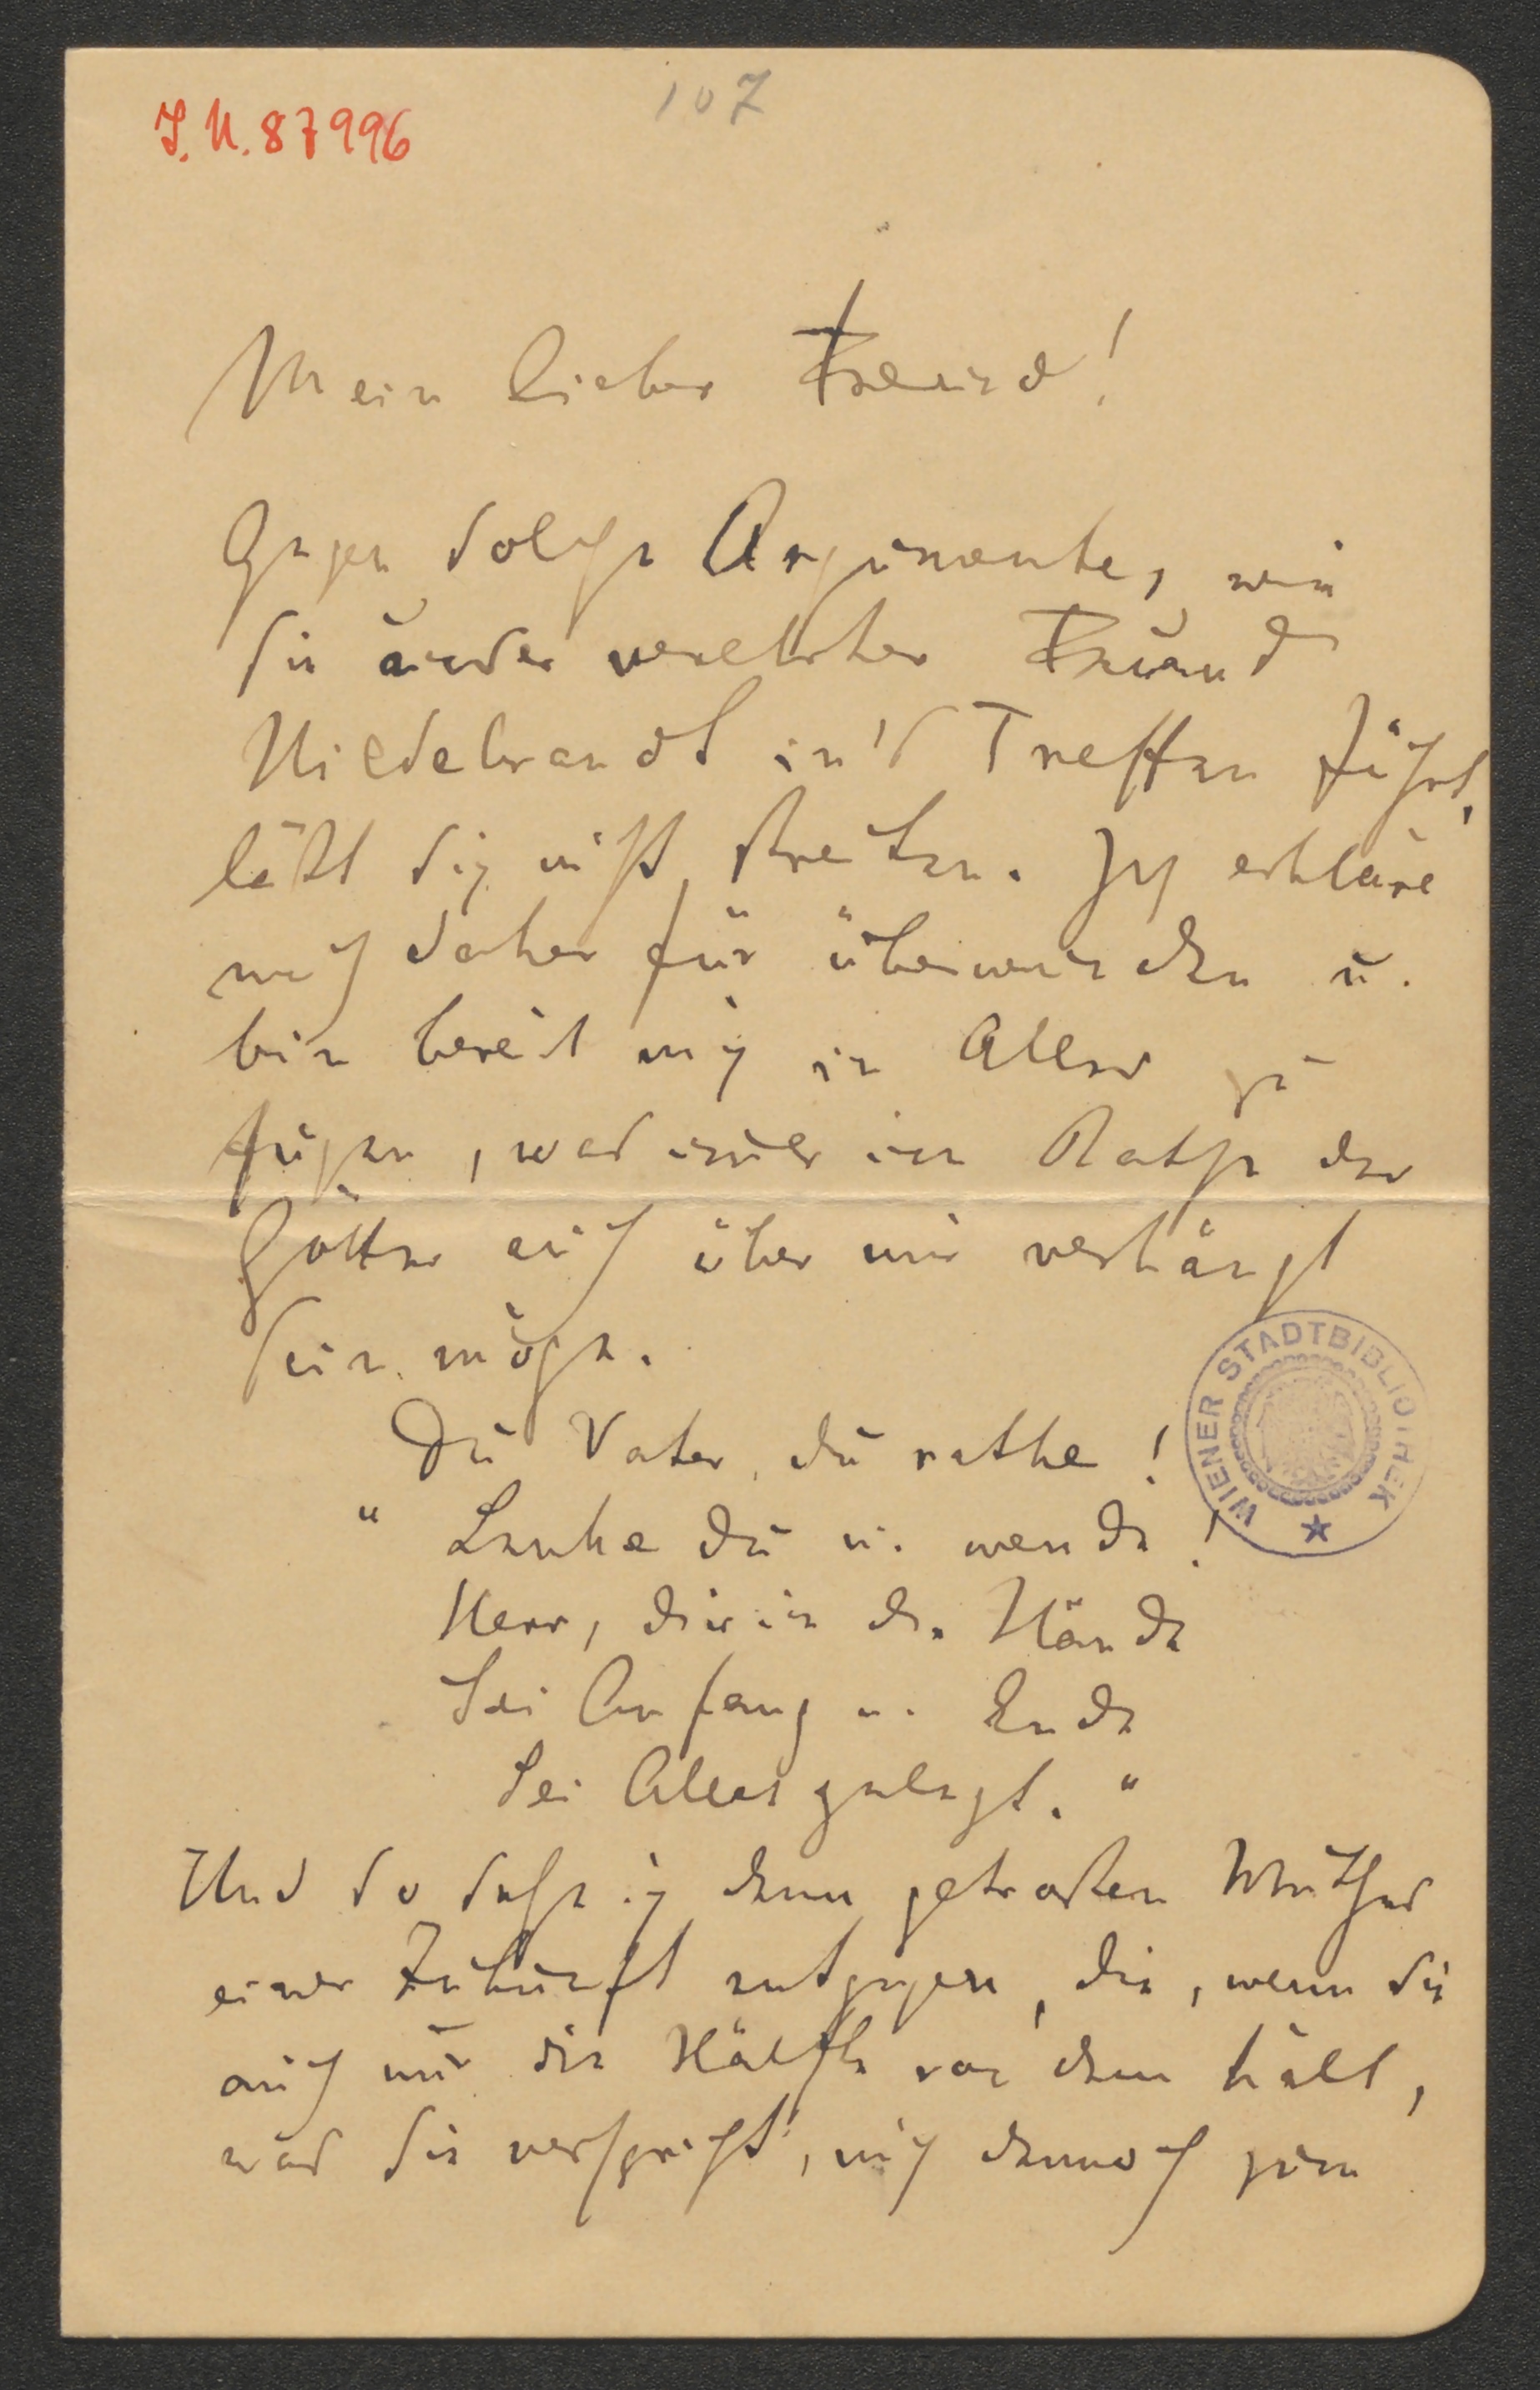 J. N. 87996
107
Mein lieber Freund!
Gegen solche Argumente, wie
sie unser verehrter Freund
Hildebrandt in's Treffen führt,
läßt sich nicht streiten. Ich erkläre
mich daher für überwunden u.
bin bereit mich in Alles zu
fügen, was immer im Rathe der
Götter auch über mir verhängt
sein möge.
Du Vater, du rathe!
" Lenke du u. wende!
Herr, dir in die Hände
Sei Anfang u. Ende
Sei Alles gelegt. "
Und so sehe ich denn getrosten Muthes
einer Zukunft entgegen, die, wenn sie
auch nur die Hälfte von dem hält,
was sie verspricht, mich dennoch zum
WIENER STADTBIBLIOTHEK